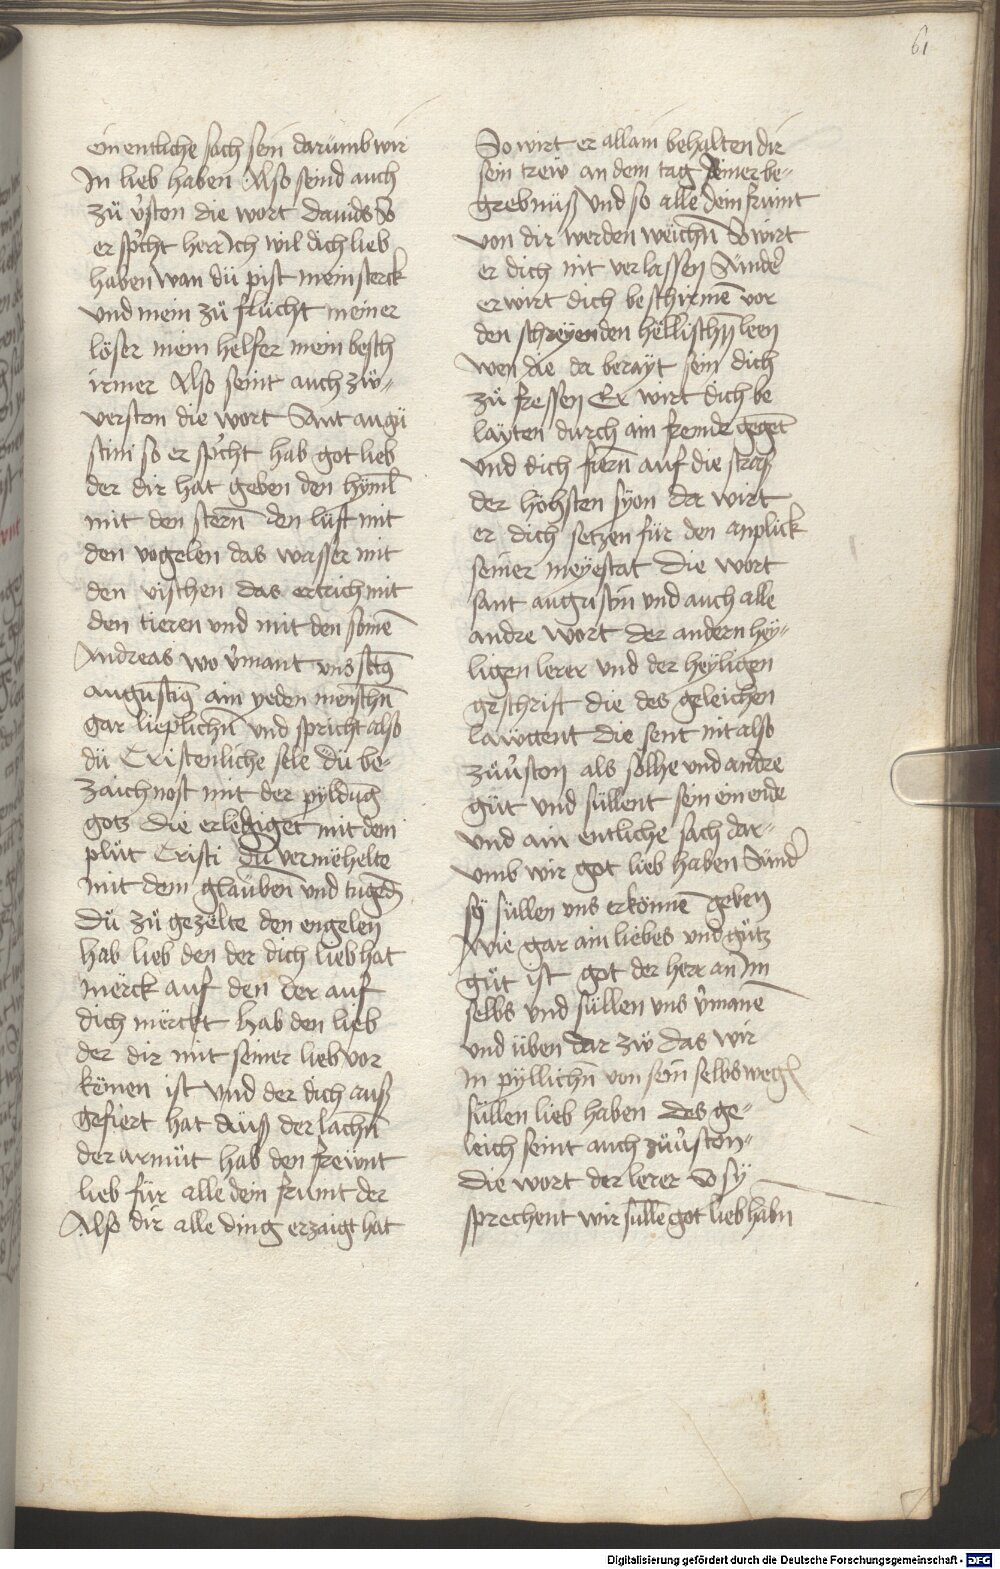 61
ein entliche sach sein darumb wir
In lieb haben Also seind auch
zů v̓ston die wort dauids So
er sp̓cht herr Ich wil dich lieb
haben wan dü pist mein sterck
vnd mein zů flücht meiner
löser mein helfer mein besch
irmer Also seint auch zů-
verston die wort Sant augu
stini so er sp̓cht hab got lieb
der dir hat geben den hÿml̄
mit den stern̄ den lüft mit
den vogelen das wasser mit
den vischen das ertrich mit
den tieren vnd mit den
Andreas wo v̓mant vns
augustiꝰ ain yeden menschn̄
gar lieplichn̄ vnd spricht also
dü Cristenliche sele du be-
zaichnost mit der pyldūg
gotz die erlediget mit dem
plüt Cristi dü vermëhelte
mit dem glauben vnd tugēd
Dü zů gezëlte den engelen
hab lieb den der dich lieb hat
mërck auf den der auf
dich mërckt hab den lieb
der dir mit seiner lieb vor
kömen ist vnd der dich auß
gefiert hat auß der lachn̄
der armüt hab den frewnt
lieb für alle dein frumt der
Also dir alle ding erzaigt hat
So wirt er allain behalten dir
sein trew an dem tag deiner be-
grebnüß vnd so alle dein frumt
von dir werden weichn̄ So wirt
er dich nit verlassen Sünder
er wirt dich beschirmē vor
den schreyenden hëllischn̄ leen
wen die da berayt sein dich
zů fressen Er wirt dich be
layten durch ain fremde gegēt
vnd dich fiern̄ auf die straß
der höhsten syon da wirt
er dich setzen für den anplick
seiner meyestat Die wort
sant augustin vnd auch alle
andre wort der andern hey-
ligen lerer vnd der heyligen
geschrift die des geleichen
lawttent die sent nit also
zův̓ston als sölhe vnd andre
güt vnd süllent sein ein ende
vnd ain entliche sach dar-
vmb wir got lieb haben Sünder
sÿ süllen vns erkönnē geben
Wie gar ain liebes vnd gůtz
gůt ist got der herr an Im
selbs vnd süllen vns v̓manē
vnd üben dar zů das wir
In pyllichn̄ von sein selbs wegē
süllen lieb haben des ge-
leich seint auch zův̓ston-
die wort der lerer So sÿ
sprechent wir süllē got lieb habn
Digitalisierung gefördert durch die Deutsche Forschungsgemeinschaft - DFG